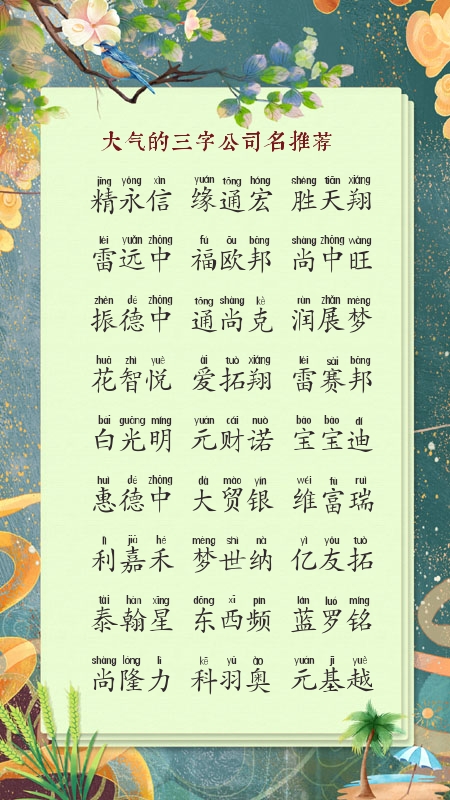 大气的三字公司名推荐
jīng yǒng xìn yuán tōng hóng shèng tiān xiáng
精永信 缘通宏 胜天翔
léi yuǎn zhōng fú ōu bāng shàng zhōng wàng
雷远中 福欧邦 尚中旺
zhèn dé zhōng tōng shàng kè rùn zhǎn mèng
振德中 通尚克 润展梦
huā zhì yuè ài tuò xiáng léi sài bāng
花智悦 爱拓翔 雷赛邦
bái guāng míng yuán cái nuò bǎo bǎo dí
白光明 元财诺 宝宝迪
huì dé zhōng dà mào yín wéi fù ruì
惠德中 大贸银 维富瑞
lì jiā hé mèng shì nà yì yǒu tuò
利嘉禾 梦世纳 亿友拓
tài hàn xīng dōng xī pín lán luó míng
泰翰星 东西频 蓝罗铭
shàng lóng lì kē yǔ ào yuán jī yuè
尚隆力 科羽奥 元基越